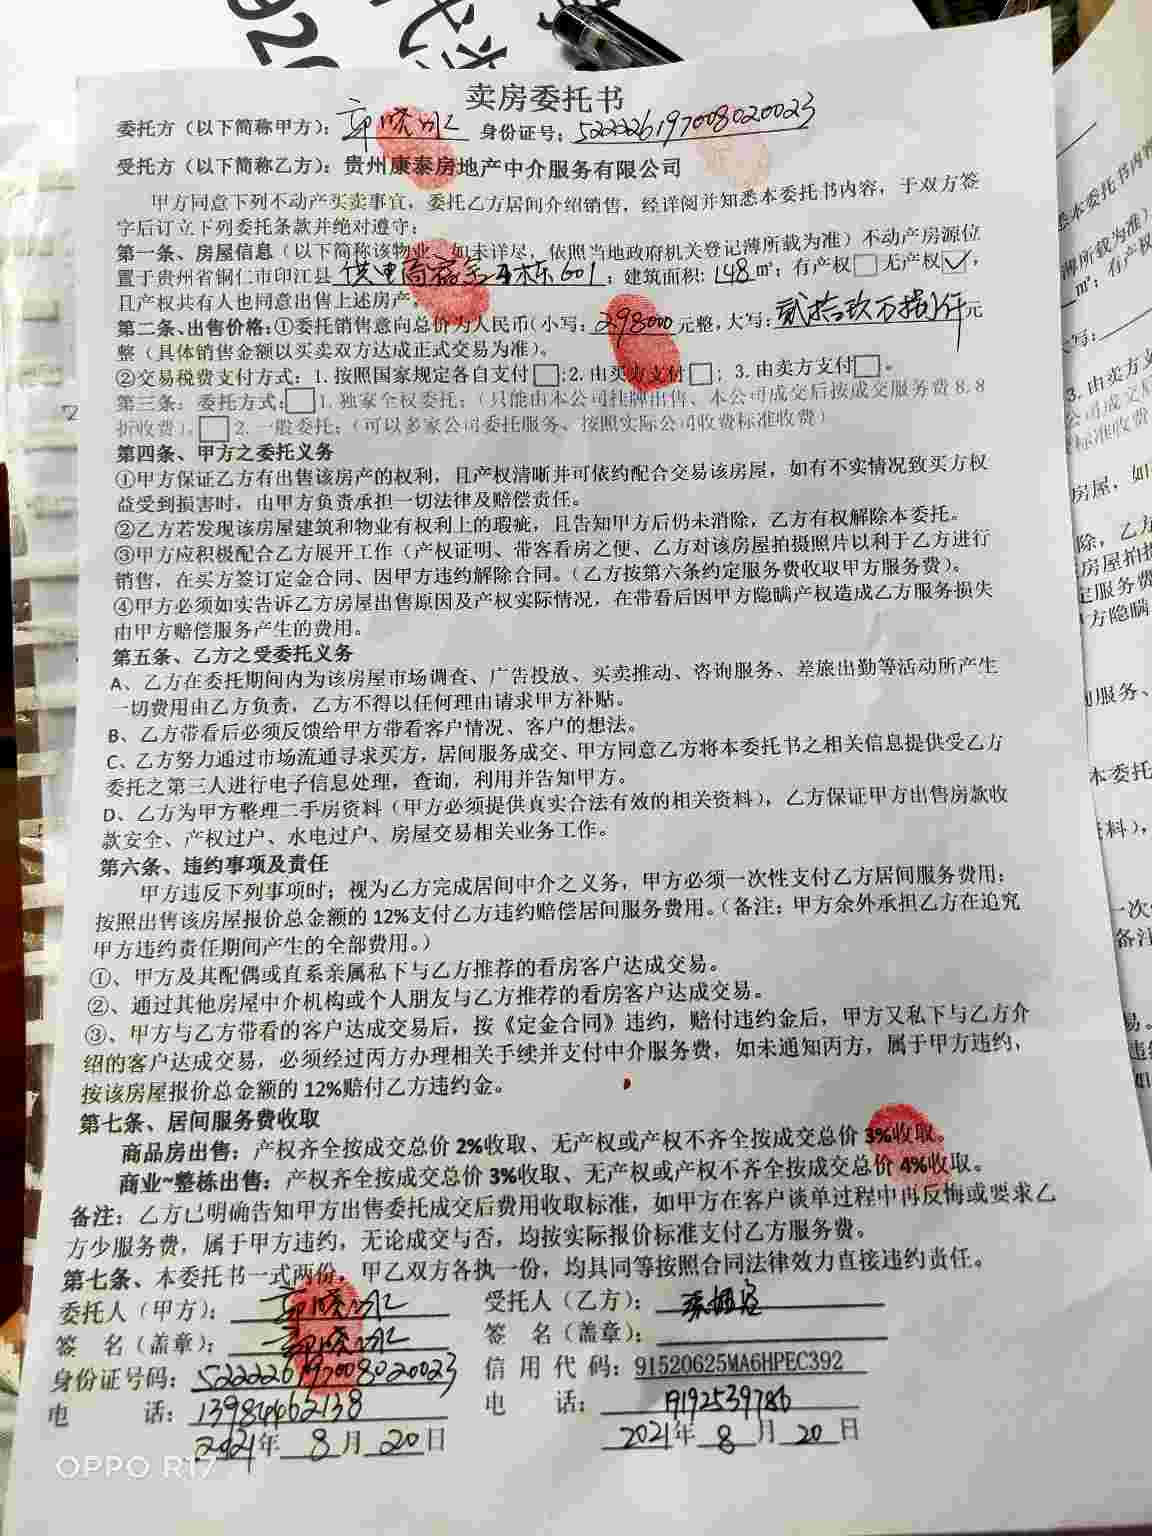 卖房委托书
委托方（以下简称甲方）： 郭晓 身份证号：522226197008020023
受托方（以下简称乙方）：贵州康泰房地产中介服务有限公司
甲方同意下列不动产买卖事宜，委托乙方居间介绍销售，经详阅并知悉本委托书内容，于双方签
字后订立下列委托条款并绝对遵守：
第一条、房屋信息（以下简称该物业，如未详尽，依照当地政府机关登记薄所载为准）不动产房源位
置于贵州省铜仁市印江县 供电局宿舍 栋601；建筑面积：148㎡；有产权□无产权☑，
且产权共有人也同意出售上述房产。
第二条、出售价格：①委托销售意向总价为人民币（小写：298000元整，大写：贰拾玖万捌仟元
整（具体销售金额以买卖双方达成正式交易为准）。
②交易税费支付方式：1.按照国家规定各自支付□；2.由买方支付□；3.由卖方支付□。
第三条：委托方式：□1.独家全权委托；（只能由本公司挂牌出售、本公司成交后按成交服务费8.8
折收费）。□2.一般委托；（可以多家公司委托服务、按照实际公司收费标准收费）
第四条、甲方之委托义务
①甲方保证乙方有出售该房产的权利，且产权清晰并可依约配合交易该房屋，如有不实情况致买方权
益受到损害时，由甲方负责承担一切法律及赔偿责任。
②乙方若发现该房屋建筑和物业有权利上的瑕疵，且告知甲方后仍未消除，乙方有权解除本委托。
③甲方应积极配合乙方展开工作（产权证明、带客看房之便、乙方对该房屋拍摄照片以利于乙方进行
销售，在买方签订定金合同、因甲方违约解除合同。（乙方按第六条约定服务费收取甲方服务费）。
④甲方必须如实告诉乙方房屋出售原因及产权实际情况，在带看后因甲方隐瞒产权造成乙方服务损失
由甲方赔偿服务产生的费用。
第五条、乙方之受委托义务
A、乙方在委托期间内为该房屋市场调查、广告投放、买卖推动、咨询服务、差旅出勤等活动所产生
一切费用由乙方负责，乙方不得以任何理由请求甲方补贴。
B、乙方带看后必须反馈给甲方带看客户情况、客户的想法。
C、乙方努力通过市场流通寻求买方，居间服务成交、甲方同意乙方将本委托书之相关信息提供受乙方
委托之第三人进行电子信息处理，查询，利用并告知甲方。
D、乙方为甲方整理二手房资料（甲方必须提供真实合法有效的相关资料），乙方保证甲方出售房款收
款安全、产权过户、水电过户、房屋交易相关业务工作。
第六条、违约事项及责任
甲方违反下列事项时；视为乙方完成居间中介之义务，甲方必须一次性支付乙方居间服务费用；
按照出售该房屋报价总金额的12%支付乙方违约赔偿居间服务费用。（备注；甲方余外承担乙方在追究
甲方违约责任期间产生的全部费用。）
①、甲方及其配偶或直系亲属私下与乙方推荐的看房客户达成交易。
②、通过其他房屋中介机构或个人朋友与乙方推荐的看房客户达成交易。
③、甲方与乙方带看的客户达成交易后，按《定金合同》违约，赔付违约金后，甲方又私下与乙方介
绍的客户达成交易，必须经过丙方办理相关手续并支付中介服务费，如未通知丙方，属于甲方违约，
按该房屋报价总金额的12%赔付乙方违约金。
第七条、居间服务费收取
商品房出售；产权齐全按成交总价2%收取、无产权或产权不齐全按成交总价3%收取。
商业~整栋出售；产权齐全按成交总价3%收取、无产权或产权不齐全按成交总价4%收取。
备注：乙方已明确告知甲方出售委托成交后费用收取标准，如甲方在客户谈单过程中再反悔或要求乙
方少服务费，属于甲方违约，无论成交与否，均按实际报价标准支付乙方服务费。
第七条、本委托书一式两份，甲乙双方各执一份，均具同等按照合同法律效力直接违约责任。
委托人（甲方）： 郭晓 受托人（乙方）：
签 名（盖章）： 郭晓 签 名（盖章）：
身份证号码：522226197008020023 信用代码：91520625MA6HPEC392
电 话：13984462138 电 话：19192539786
2021年8月20日 2021年8月20日
OPPO R17